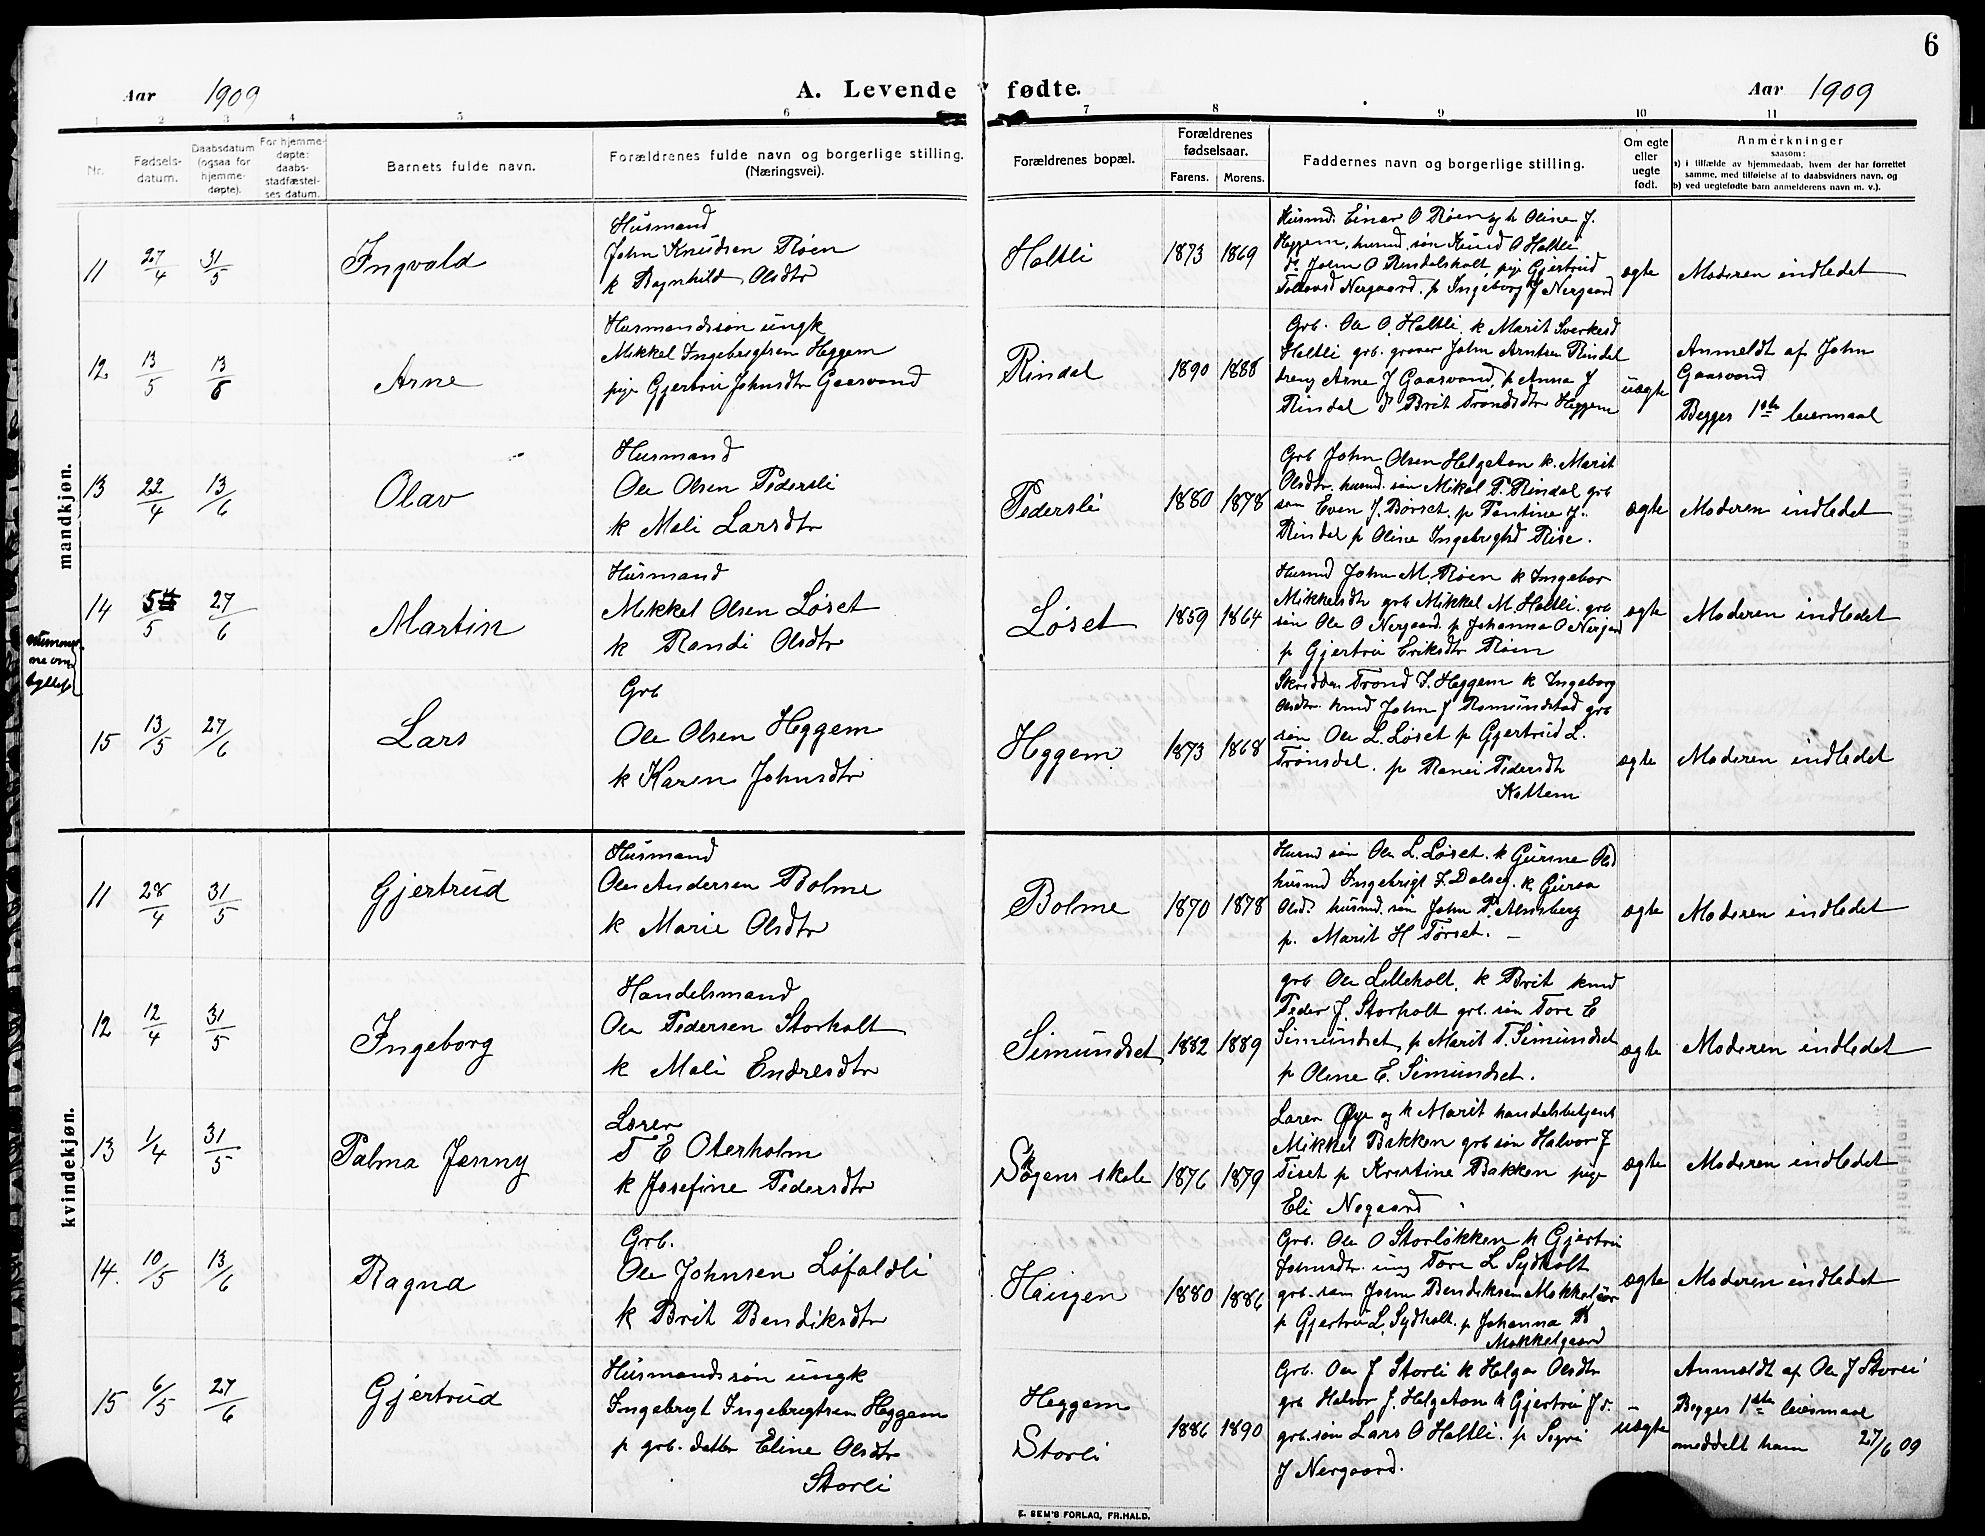 6
Aar 1909
A. Levende fødte.
Aar 1909
1 2 3 4 5 6 7 8 9 10 11
Nr.
Fødsels-
datum.
Daabsdatum
(ogsaa for
hjemme-
døpte).
For hjemme-
døpte:
daabs-
stadfæstel-
ses datum.
Barnets fulde navn.
Forældrenes fulde navn og borgerlige stilling.
(Næringsvei).
Forældrenes bopæl.
Forældrenes
fødselsaar.
Farens. Morens.
Faddernes navn og borgerlige stilling.
Om egte
eller
uegte
født.
Anmerkninger
saasom:
a) i tilfælde av hjemmedaab, hvem der har forrettet
samme, med tilføielse af to daabsvidners navn, og
b) ved uegtefødte barn anmelderens navn m. v.).
mandkjøn.
11 27/4 31/5 Ingvald
Husmand
John Knudsen Røen
k Ragnhild Olsdtr
Holtli 1873 1869
Husmd. Einar O Røen og k Oline J.
Heggem, husmd. søn Knud O Holtli
do John O Rindalsholt, pige Gjertrud
Nergaard, p Ingeborg J Nergaard
ægte Moderen indledet
12 13/5 13/6 Arne
Husmandssøn ungk
Mikkel Ingebrigtsen Heggem
pige Gjertru Johnsdtr Gaasvand
Rindal 1890 1888
Grb. Ole O. Holtli, k Marit Sverkesd
Holtli grb. John Arntsen Rindal
dreng Arne J Gaasvand, p Anna J
Rindal p Brit Trondsdtr Heggem
uægte
Anmeldt af John
Gaasvand
Begges 1ste leiermaal
13 22/4 13/6 Olav
Husmand
Ole Olsen Pedersli
k Mali Larsdtr
Pedersli 1880 1878
Grb John Olsen Helgeton k. Marit
Olsdtr. husmd. søn Mikal P. Rindal grb
søn Even J. Børset. p J.
Rindal p Oline Ingebrigtsd Rise.
ægte Moderen indledet
14 5/5 27/6 Martin
Husmand
Mikkel Olsen Løset
k Randi Olsdtr
Løset 1859 1864
Husmd John M. Røen k Ingebor
Mikkelsdtr grb Mikkel M. Holtli. grb
søn Ole O Nergaard. p Johanna O Nergaard
p Gjertru Eriksdtr Røen
ægte Moderen indledet
15 13/5 27/6 Lars
Grb
Ole Olsen Heggem
k Karen Johnsdtr
Heggem 1873 1868
Skrædder Trond I. Heggem k Ingeborg
Olsdtr. John J Romundstad grb
søn Ole L. Løset p Gjertrud L.
Trønsdal. p Pedersdtr
Kattem
ægte Moderen indledet
kvindekjøn.
11 28/4 31/5 Gjertrud
Husmand
Ole Andersen Bolme
k Marie Olsdtr
Bolme 1870 1878
Husmd søn Ole L. Løset. k Gurine Olsd
husmd Ingebrigt I. Dalseg. k Guroa
Olsd. husmd. søn John P. Almberg
p. Marit H Tørset.
ægte Moderen indledet
12 12/4 31/5 Ingeborg
Handelsmand
Ole Pedersen Storholt
k Mali Endresdtr
Simundset 1882 1889
grb Ole Lilleholt, k Brit
Peder J. Storholt grb. søn Tore E
Simundset, p Marit T. Simundset
p Oline E. Simundset.
ægte Moderen indledet
13 1/4 31/5 Palma Jenny
Lærer
T E Oterholm
k Josefine Pedersdtr
Skogens skole 1876 1879
Lærer Øye og k Marit handelsbetjent
Mikkel Bakken grb søn Halvor J
Tiset p Kristine Bakken pige
Eli Nøgaard
ægte Moderen indledet
14. 10/5 13/6 Ragna
Grb.
Ole Johnsen Løfaldli
k Brit Bendiksdtr
Haugen 1880 1886
Grb. Ole O Storløkken k Gjertru
Johnsdtr. ung Tore L Sydholt
grb. søn John Bendiksen
p Gjertru L. Sydholt. p Johanna B
Mokkelgaard
ægte Moderen indledet
15 6/5 27/6 Gjertrud
Husmandssøn ungk
Ingebrigt Ingebrigtsen Heggem
p grb. datter Eline Olsdtr
Storli
Heggem
Storli
1886 1890
Grb. Ole J Storli k Helga Olsdtr
grb Halvor J. Helgeton k Gjertru J. d.
grb. søn Lars O Holtli. p Sigri
J Nergaard.
uægte
Anmeldt af Ole J Storli
Begges 1ste leiermaal
meddelt ham 27/6 09
E. SEM'S FORLAG, FR.HALD.